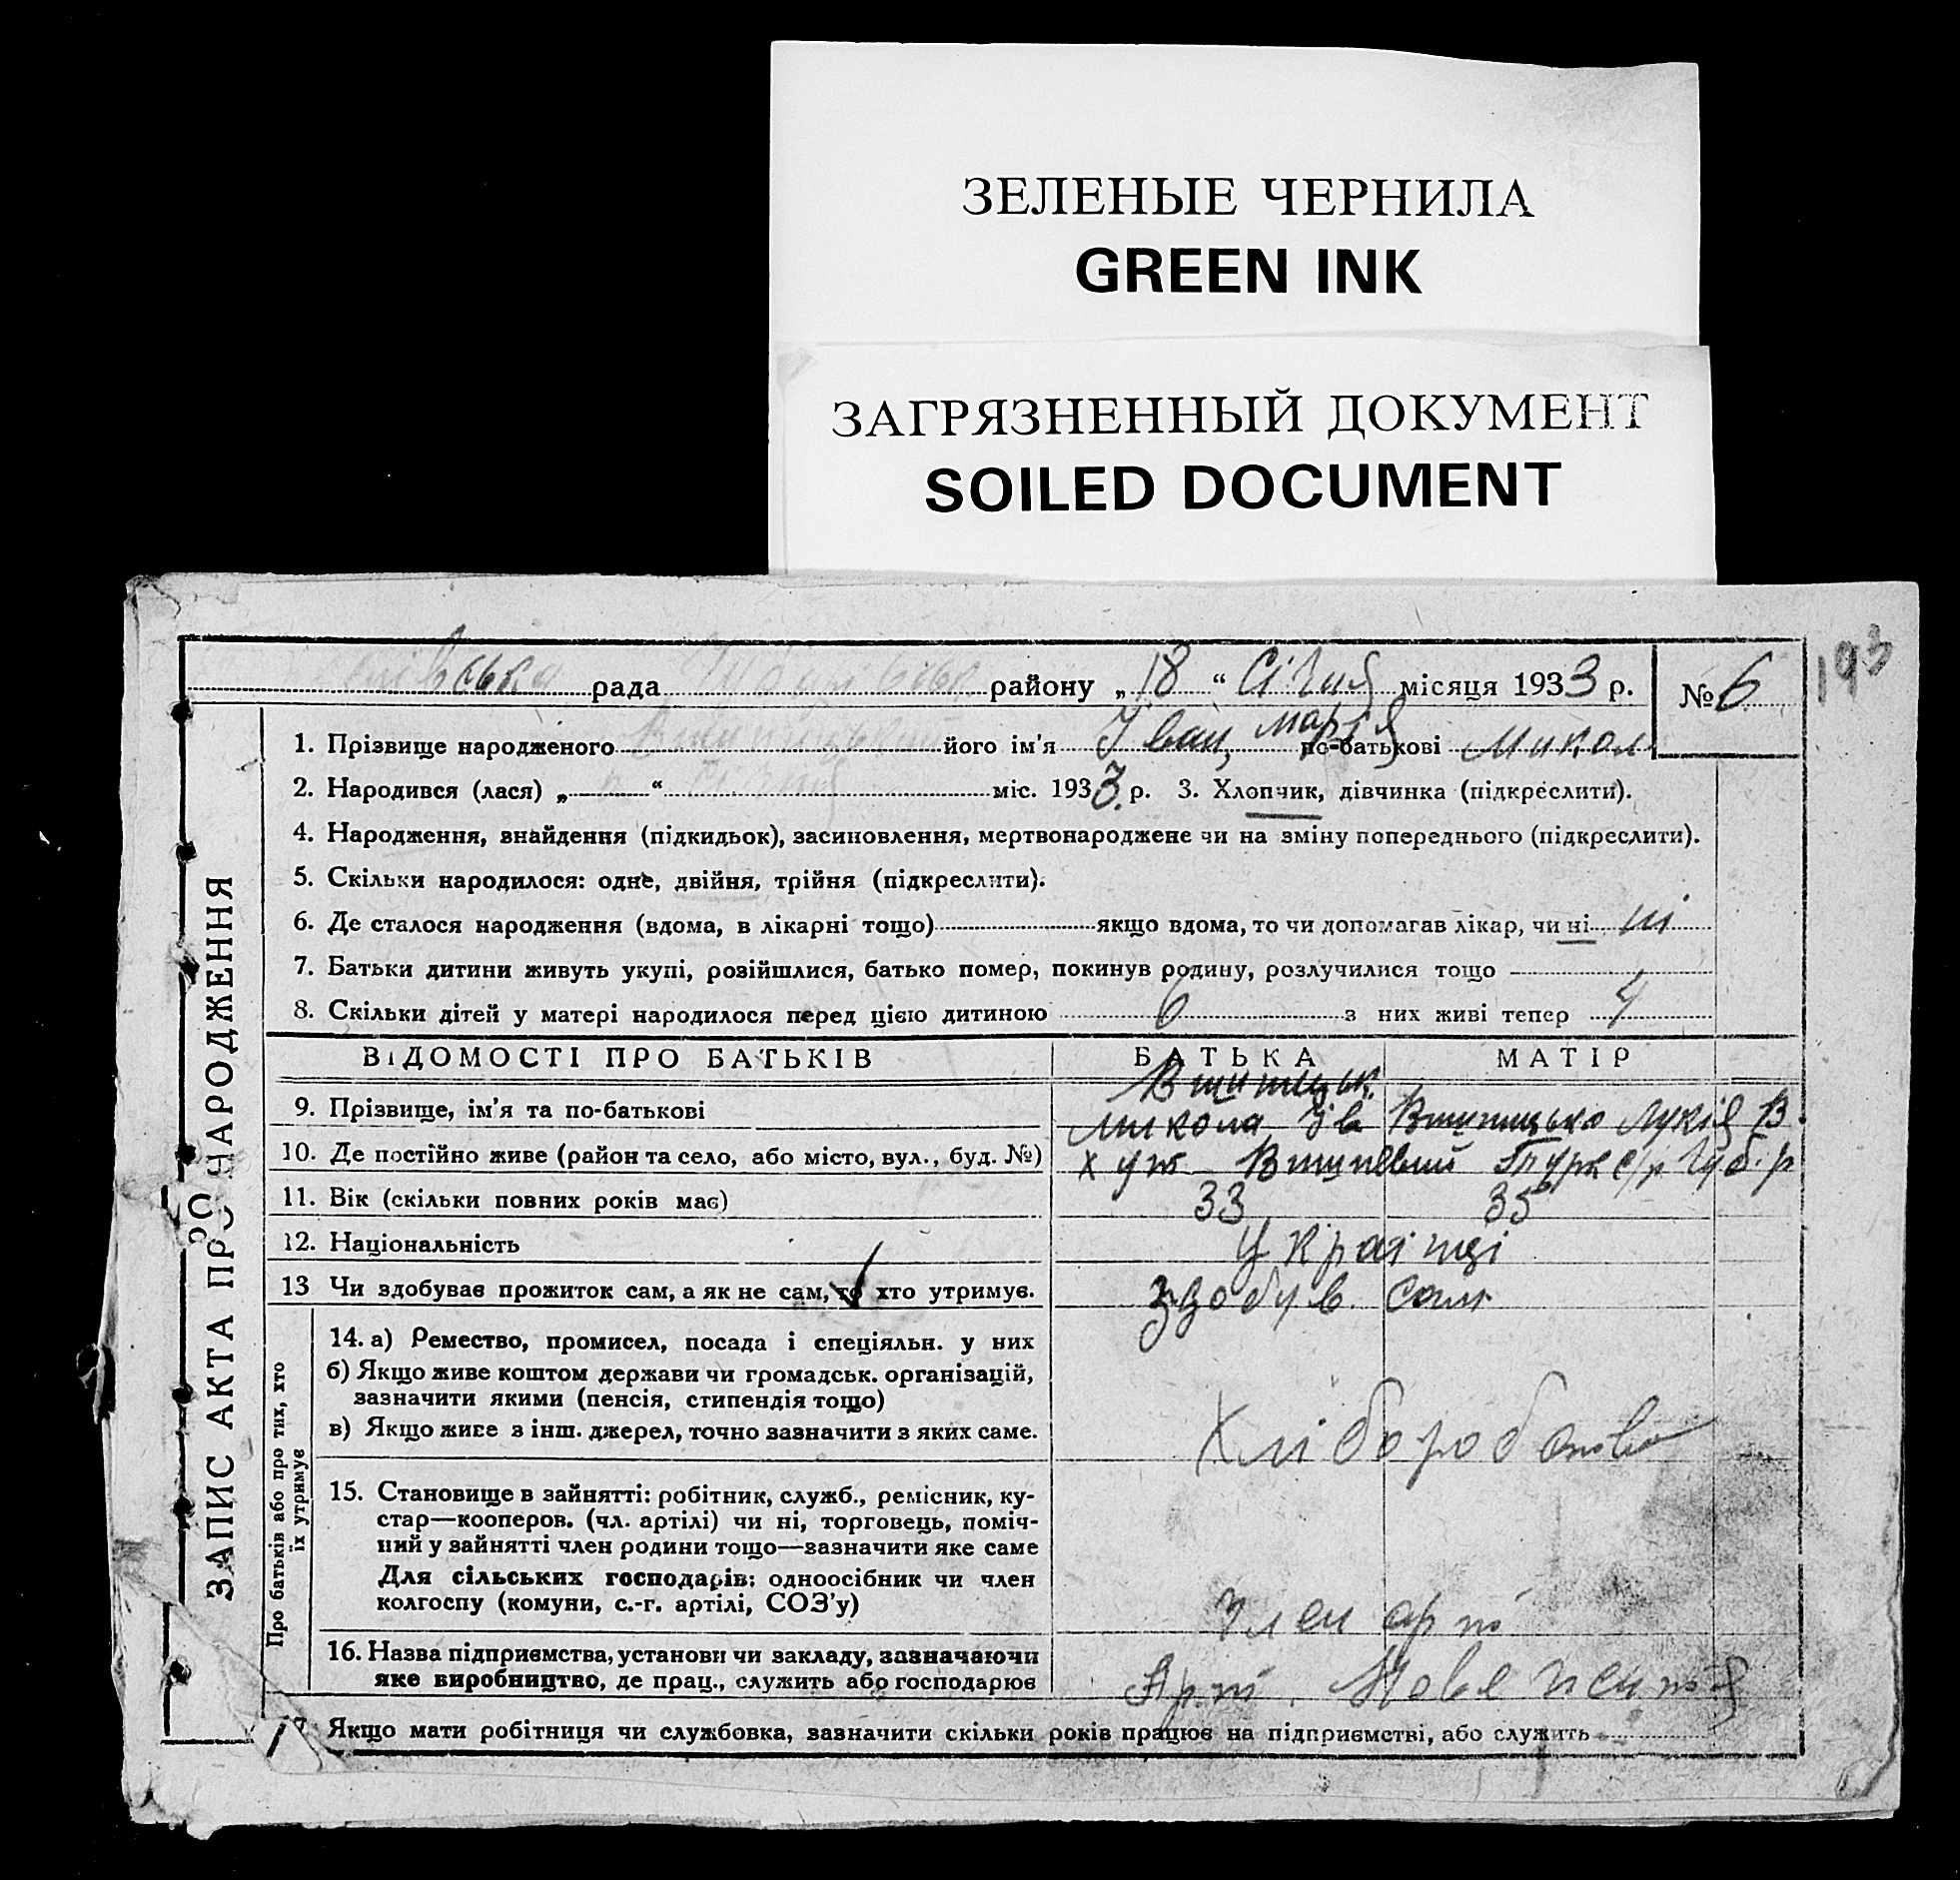 ЗЕЛЕНЫЕ ЧЕРНИЛА
GREEN INK
ЗАГРЯЗНЕННЫЙ ДОКУМЕНТ
SOILED DOCUMENT
193
рада району „18“ Січня місяця 1933 р. № 6
1. Прізвище народженого його ім'я Іван, Марія по-батькові Микол
2. Народився (лася) „ “ міс. 1933 р. 3. Хлопчик, дівчинка (підкреслити).
4. Народження, знайдення (підкидьок), засиновлення, мертвонароджене чи на зміну попереднього (підкреслити).
5. Скільки народилося: одне, двійня, трійня (підкреслити).
6. Де сталося народження (вдома, в лікарні тощо) якщо вдома, то чи допомагав лікар, чи ні ні
7. Батьки дитини живуть укупі, розійшлися, батько помер, покинув родину, розлучилися тощо
8. Скільки дітей у матері народилося перед цією дитиною 6 з них живі тепер 4
ВІДОМОСТІ ПРО БАТЬКІВ БАТЬКА МАТІР
9. Прізвище, ім'я та по-батькові Микола Ів Лукія В
10. Де постійно живе (район та село, або місто, вул., буд. №) хут
11. Вік (скільки повних років має) 33 35
12. Національність Українці
13 Чи здобуває прожиток сам, а як не сам, то хто утримує. здобув. сам
14. а) Ремество, промисел, посада і спеціяльн. у них
б) Якщо живе коштом держави чи громадськ. організацій,
зазначити якими (пенсія, стипендія тощо)
в) Якщо живе з інш. джерел, точно зазначити з яких саме.
15. Становище в зайнятті: робітник, служб., ремісник, ку-
стар—кооперов. (чл. артілі) чи ні, торговець, поміч-
ний у зайнятті член родини тощо—зазначити яке саме
Для сільських господарів: одноосібник чи член
колгоспу (комуни, с.-г. артілі, СОЗ'у)
член арт
16. Назва підприємства, установи чи закладу, зазначаючи
яке виробництво, де прац., служить або господарює Арт. Нове
17. Якщо мати робітниця чи службовка, зазначити скільки років працює на підприємстві, або служить
ЗАПИС АКТА ПРО НАРОДЖЕННЯ
Про батьків або про тих, хто
їх утримує